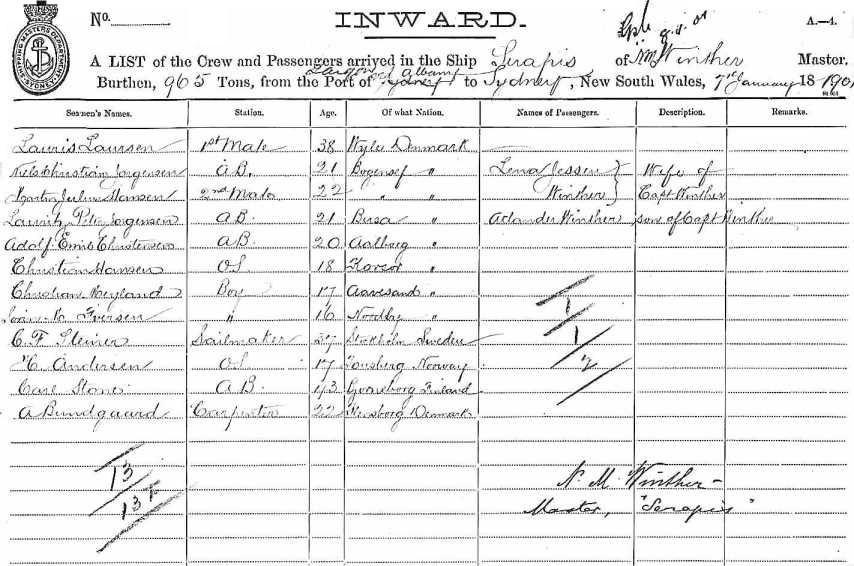 No.
INWARD.
A.—4.
SHIPPING MASTERS DEPARTMENT SYDNEY
A LIST of the Crew and Passengers arrived in the Ship Serapis of N M Winther Master.
Burthen, 965 Tons, from the Port of Albany to Sydney, New South Wales, 7th January 190
Seamen's Names. Station. Age. Of what Nation. Names of Passengers. Description. Remarks.
Lauris Laursen 1st Mate 38 Denmark
Niels Christian Jorgensen A.B. 21 Bogense "
Martin Julius Hansen 2nd Mate 22 " "
Lena Jessen Winther } Wife of Capt Winther
Lauritz Peter Jorgensen A.B. 21 " Winther son of Capt Winther
Adolf Emil Christensen A.B. 20 Aalborg "
Christian Hansen O.S 18 Korsor "
Christian Boy 17 "
Iversen " 16 Nordby "
C. F. Steiner Sailmaker 27 Stockholm Sweden
C. Andersen O.S 17 Tonsberg Norway
Carl A.B. 43 Finland
A Bundgaard Carpenter 22 Denmark
1
1
2
13
13
N. M. Winther
Master, "Serapis"